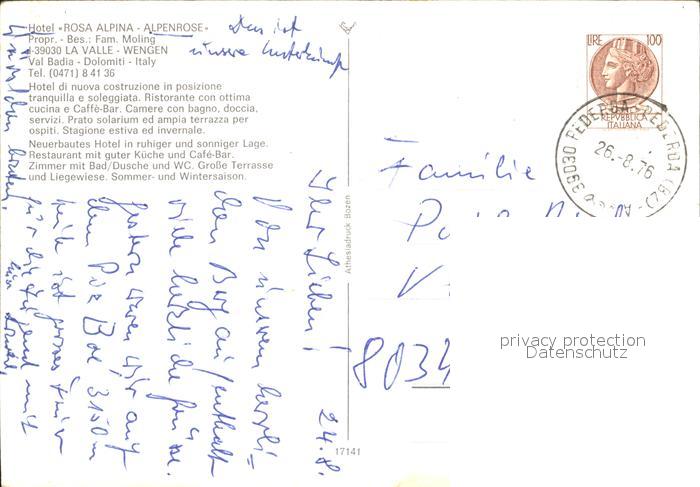 Hotel «ROSA ALPINA - ALPENROSE»
Propr. - Bes.: Fam. Moling
I-39030 LA VALLE - WENGEN
Val Badia - Dolomiti - Italy
Tel. (0471) 8 41 36
Hotel di nuova costruzione in posizione
tranquilla e soleggiata. Ristorante con ottima
cucina e Caffè-Bar. Camere con bagno, doccia,
servizi. Prato solarium ed ampia terrazza per
ospiti. Stagione estiva ed invernale.
Neuerbautes Hotel in ruhiger und sonniger Lage.
Restaurant mit guter Küche und Café-Bar.
Zimmer mit Bad/Dusche und WC. Große Terrasse
und Liegewiese. Sommer- und Wintersaison.
Das ist
unsere Unterkunft
24. 8.
Ihr Lieben!
Von unserem herrli=
chen Bergaufenthalt
viele herzliche Grüße.
Gestern waren wir auf
dem Piz Boe, 3150 m
heute ist
für die Jugend mit
Athesiadruck Bozen
17141
LIRE 100
REPVBBLICA
ITALIANA
39030 PEDEROA - PEDEROA (BZ)
26.-8.76
Familie
8034
privacy protection
Datenschutz